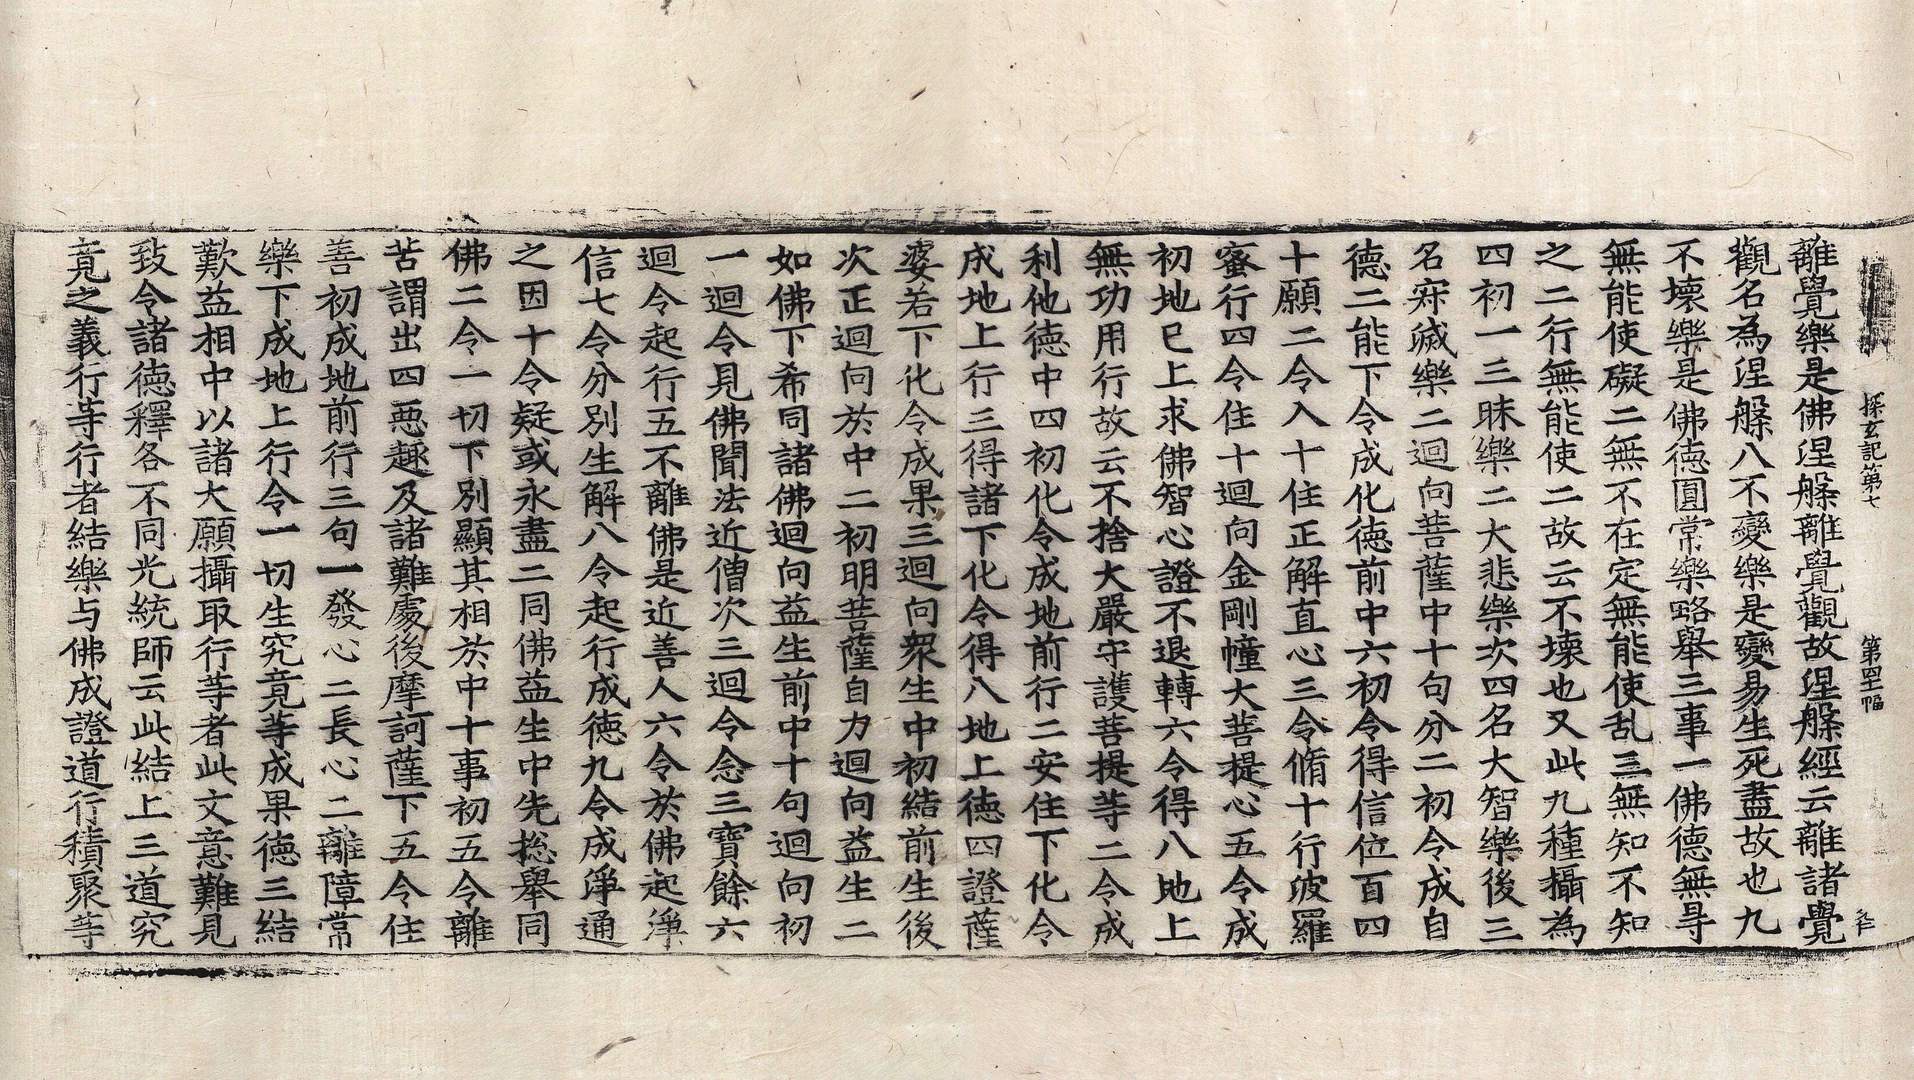 探玄記第七　第四十幅
離覺樂是佛涅槃離覺觀故涅槃經云離諸覺
觀名為涅槃八不變樂是變易生死盡故也九
不壞樂是佛德圓常樂略舉三事一佛德無㝵
無能使礙二無不在定無能使乱三無知不知
之二行無能使二故云不壞也又此九種攝為
四初一三昧樂二大悲樂次四名大智樂後三
名寂滅樂二迴向菩薩中十句分二初令成自
德二能下令成化德前中六初令得信位百四
十願二令入十住正解直心三令脩十行波羅
蜜行四令住十迴向金剛幢大菩提心五令成
初地已上求佛智心證不退轉六令得八地上
無功用行故云不捨大嚴守護菩提等二令成
利他德中四初化令成地前行二安住下化令
成地上行三得諸下化令得八地上德四證薩
婆若下化令成果三迴向衆生中初結前生後
次正迴向於中二初明菩薩自力迴向益生二
如佛下希同諸佛迴向益生前中十句迴向初
一迴令見佛聞法近僧次三迴令念三寶餘六
迴令起行五不離佛是近善人六令於佛起淨
信七令分別生解八令起行成德九令成淨通
之因十令疑或永盡二同佛益生中先捴舉同
佛二令一切下別顯其相於中十事初五令離
苦謂出四惡趣及諸難處後摩訶薩下五令住
善初成地前行三句一發心二長心二離障常
樂下成地上行令一切生究竟等成果德三結
歎益相中以諸大願攝取行等者此文意難見
致令諸德釋各不同光統師云此結上三道究
竟之義行等行者結樂与佛成證道行積聚等